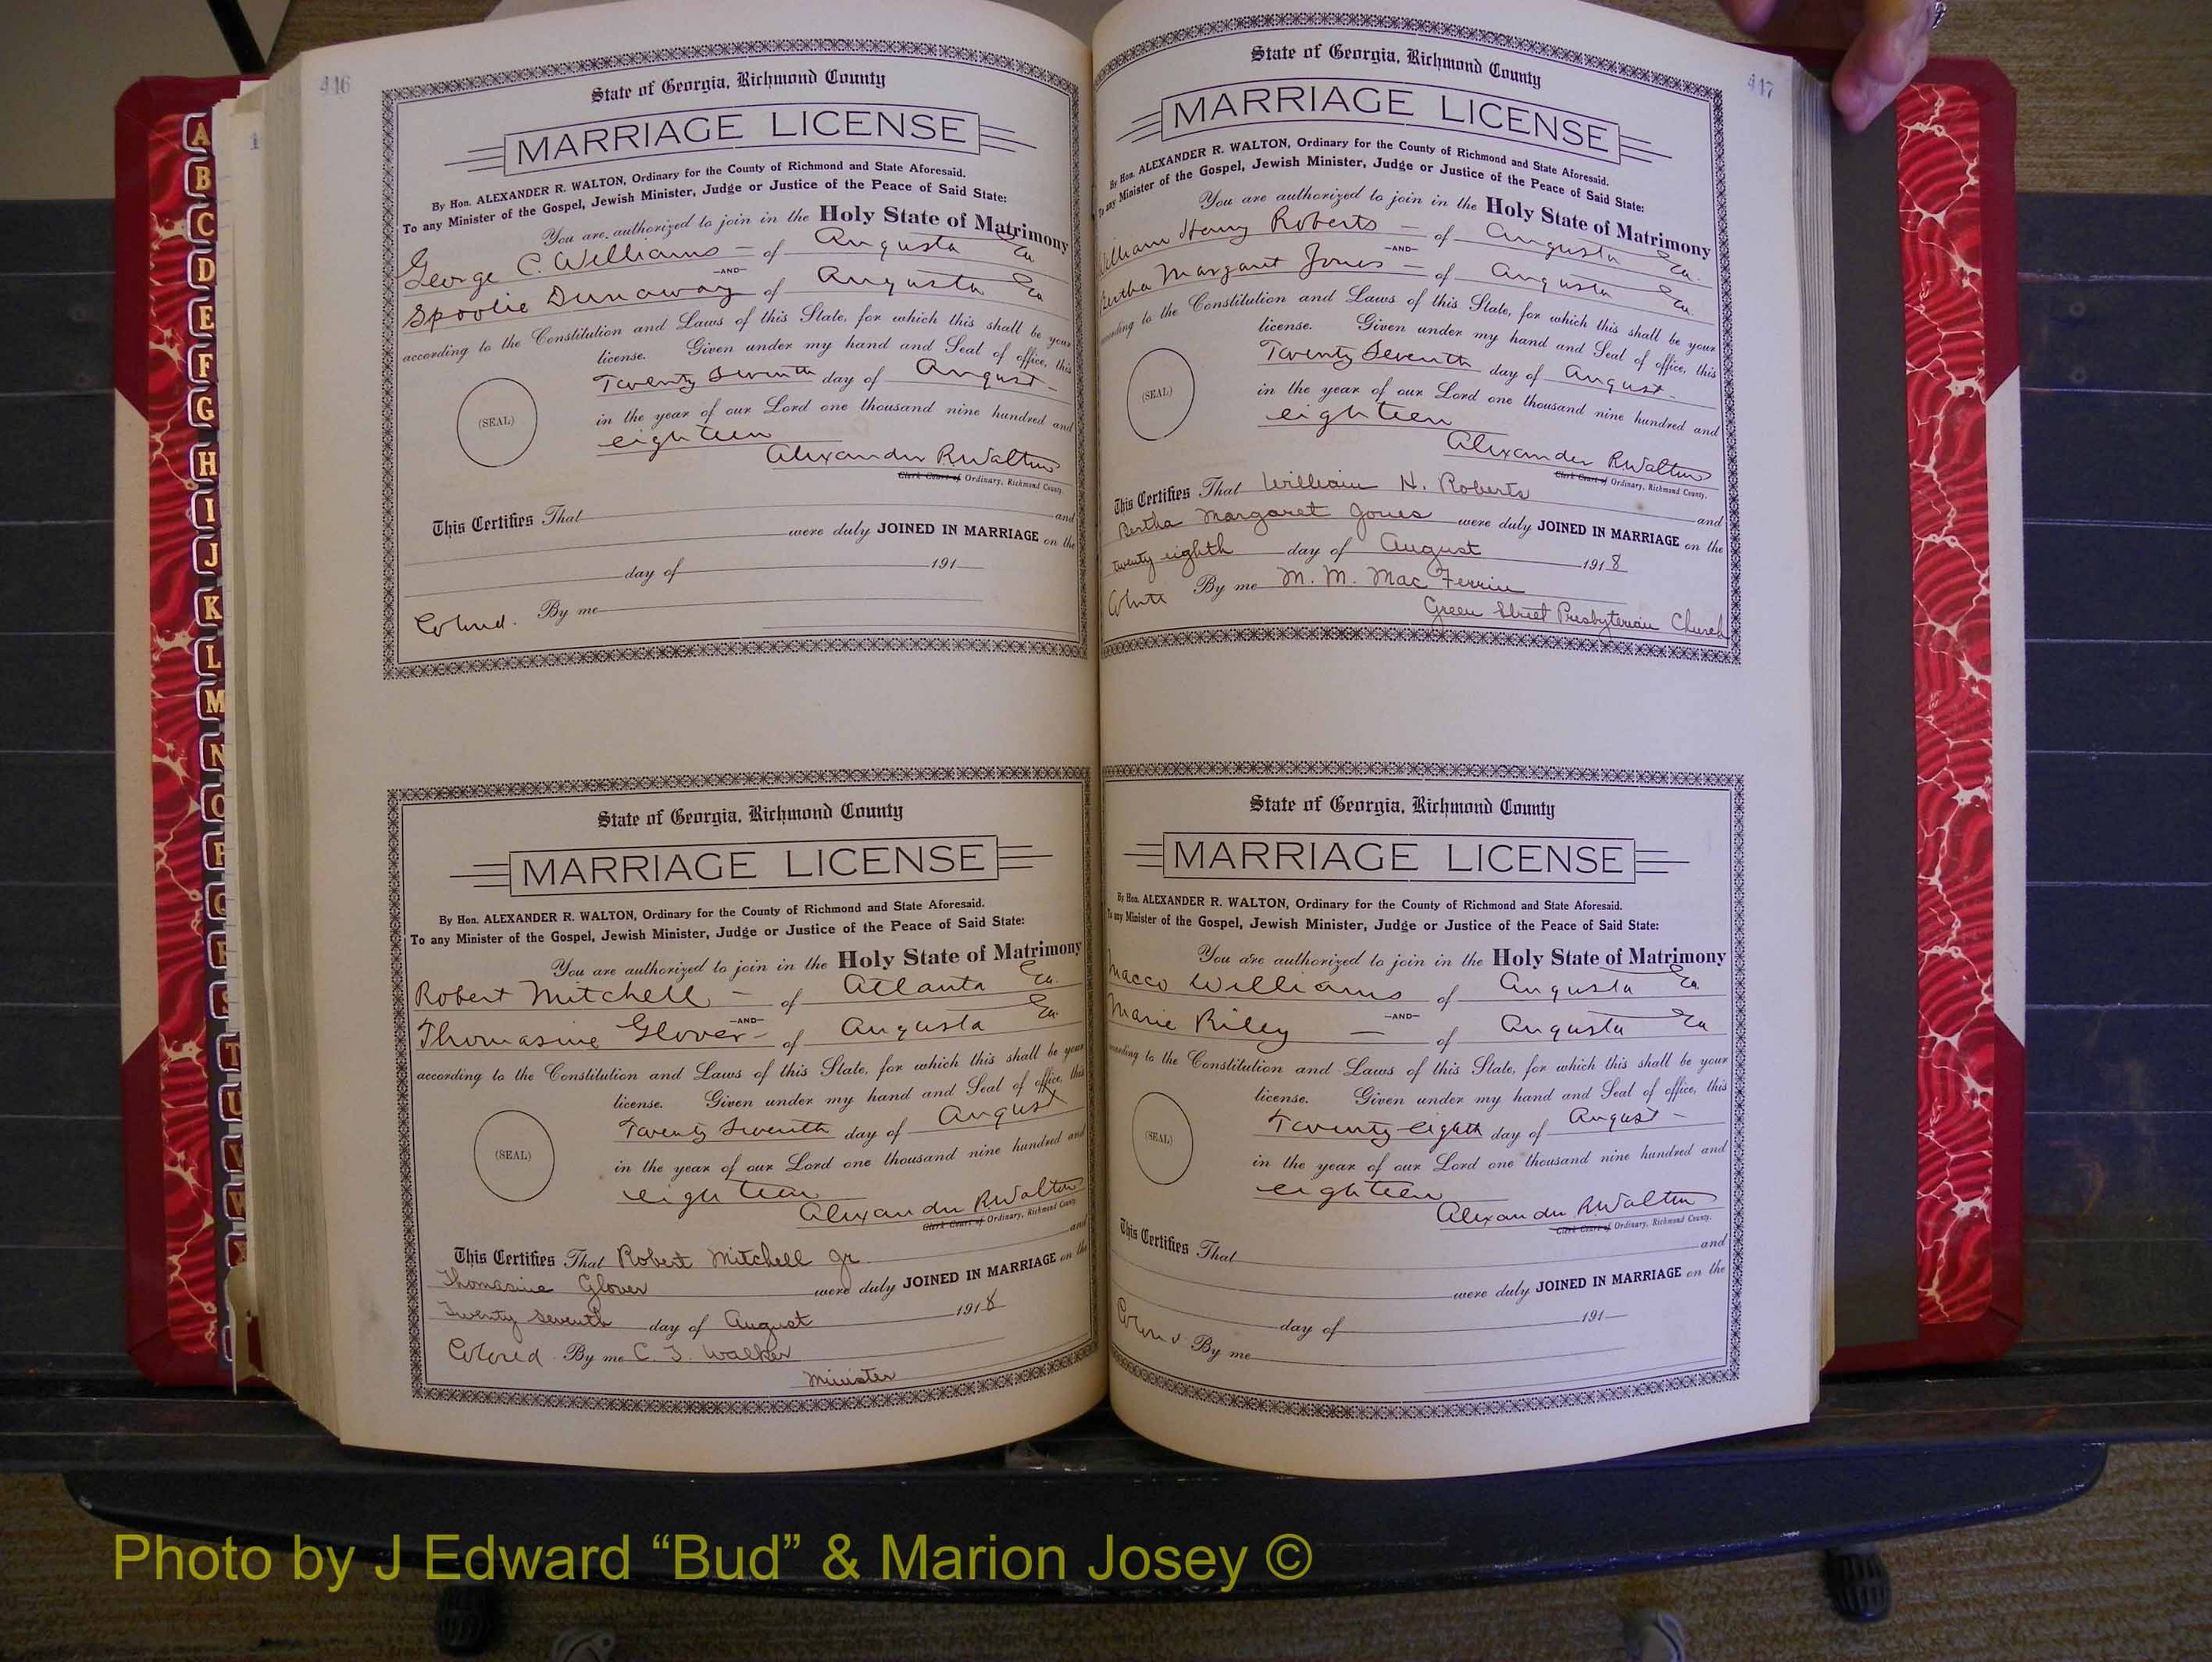 446
State of Georgia, Richmond County
MARRIAGE LICENSE
By Hon. ALEXANDER R. WALTON, Ordinary for the County of Richmond and State Aforesaid.
To any Minister of the Gospel, Jewish Minister, Judge or Justice of the Peace of Said State:
You are authorized to join in the Holy State of Matrimony
George C. Williams of Augusta Ga
—AND—
Spoolie Dunaway of Augusta Ga
according to the Constitution and Laws of this State, for which this shall be your
license. Given under my hand and Seal of office, this
Twenty Seventh day of August
(SEAL)
in the year of our Lord one thousand nine hundred and
eighteen
Alexander R Walton
Clerk Court of Ordinary, Richmond County.
This Certifies That and
were duly JOINED IN MARRIAGE on the
day of 191
Colored. By me
State of Georgia, Richmond County
MARRIAGE LICENSE
By Hon. ALEXANDER R. WALTON, Ordinary for the County of Richmond and State Aforesaid.
To any Minister of the Gospel, Jewish Minister, Judge or Justice of the Peace of Said State:
You are authorized to join in the Holy State of Matrimony
Robert Mitchell — of Atlanta Ga.
—AND—
Thomasine Glover — of Augusta Ga.
according to the Constitution and Laws of this State, for which this shall be your
license. Given under my hand and Seal of office, this
Twenty Seventh day of August
(SEAL)
in the year of our Lord one thousand nine hundred and
eighteen
Alexander R Walton
Clerk Court of Ordinary, Richmond County.
This Certifies That Robert Mitchell Jr. and
Thomasine Glover were duly JOINED IN MARRIAGE on the
Twenty seventh day of August 1918
Colored By me C. T. Walker
Minister
447
State of Georgia, Richmond County
MARRIAGE LICENSE
By Hon. ALEXANDER R. WALTON, Ordinary for the County of Richmond and State Aforesaid.
To any Minister of the Gospel, Jewish Minister, Judge or Justice of the Peace of Said State:
You are authorized to join in the Holy State of Matrimony
William Henry Roberts — of Augusta Ga.
—AND—
Bertha Margaret Jones — of Augusta Ga.
according to the Constitution and Laws of this State, for which this shall be your
license. Given under my hand and Seal of office, this
Twenty Seventh day of August
(SEAL)
in the year of our Lord one thousand nine hundred and
eighteen
Alexander R Walton
Clerk Court of Ordinary, Richmond County.
This Certifies That William H. Roberts and
Bertha Margaret Jones were duly JOINED IN MARRIAGE on the
twenty eighth day of August 1918
White By me M. M. Mac Ferrin
Green Street Presbyterian Church
State of Georgia, Richmond County
MARRIAGE LICENSE
By Hon. ALEXANDER R. WALTON, Ordinary for the County of Richmond and State Aforesaid.
To any Minister of the Gospel, Jewish Minister, Judge or Justice of the Peace of Said State:
You are authorized to join in the Holy State of Matrimony
Macco Williams of Augusta Ga
—AND—
Marie Riley — of Augusta Ga
according to the Constitution and Laws of this State, for which this shall be your
license. Given under my hand and Seal of office, this
Twenty eighth day of August
(SEAL)
in the year of our Lord one thousand nine hundred and
eighteen
Alexander R Walton
Clerk Court of Ordinary, Richmond County.
This Certifies That and
were duly JOINED IN MARRIAGE on the
day of 191
Colored By me
A
B
C
D
E
F
G
H
I
J
K
L
M
N
O
P
Q
R
S
T
U
V
W
Photo by J Edward “Bud” & Marion Josey ©